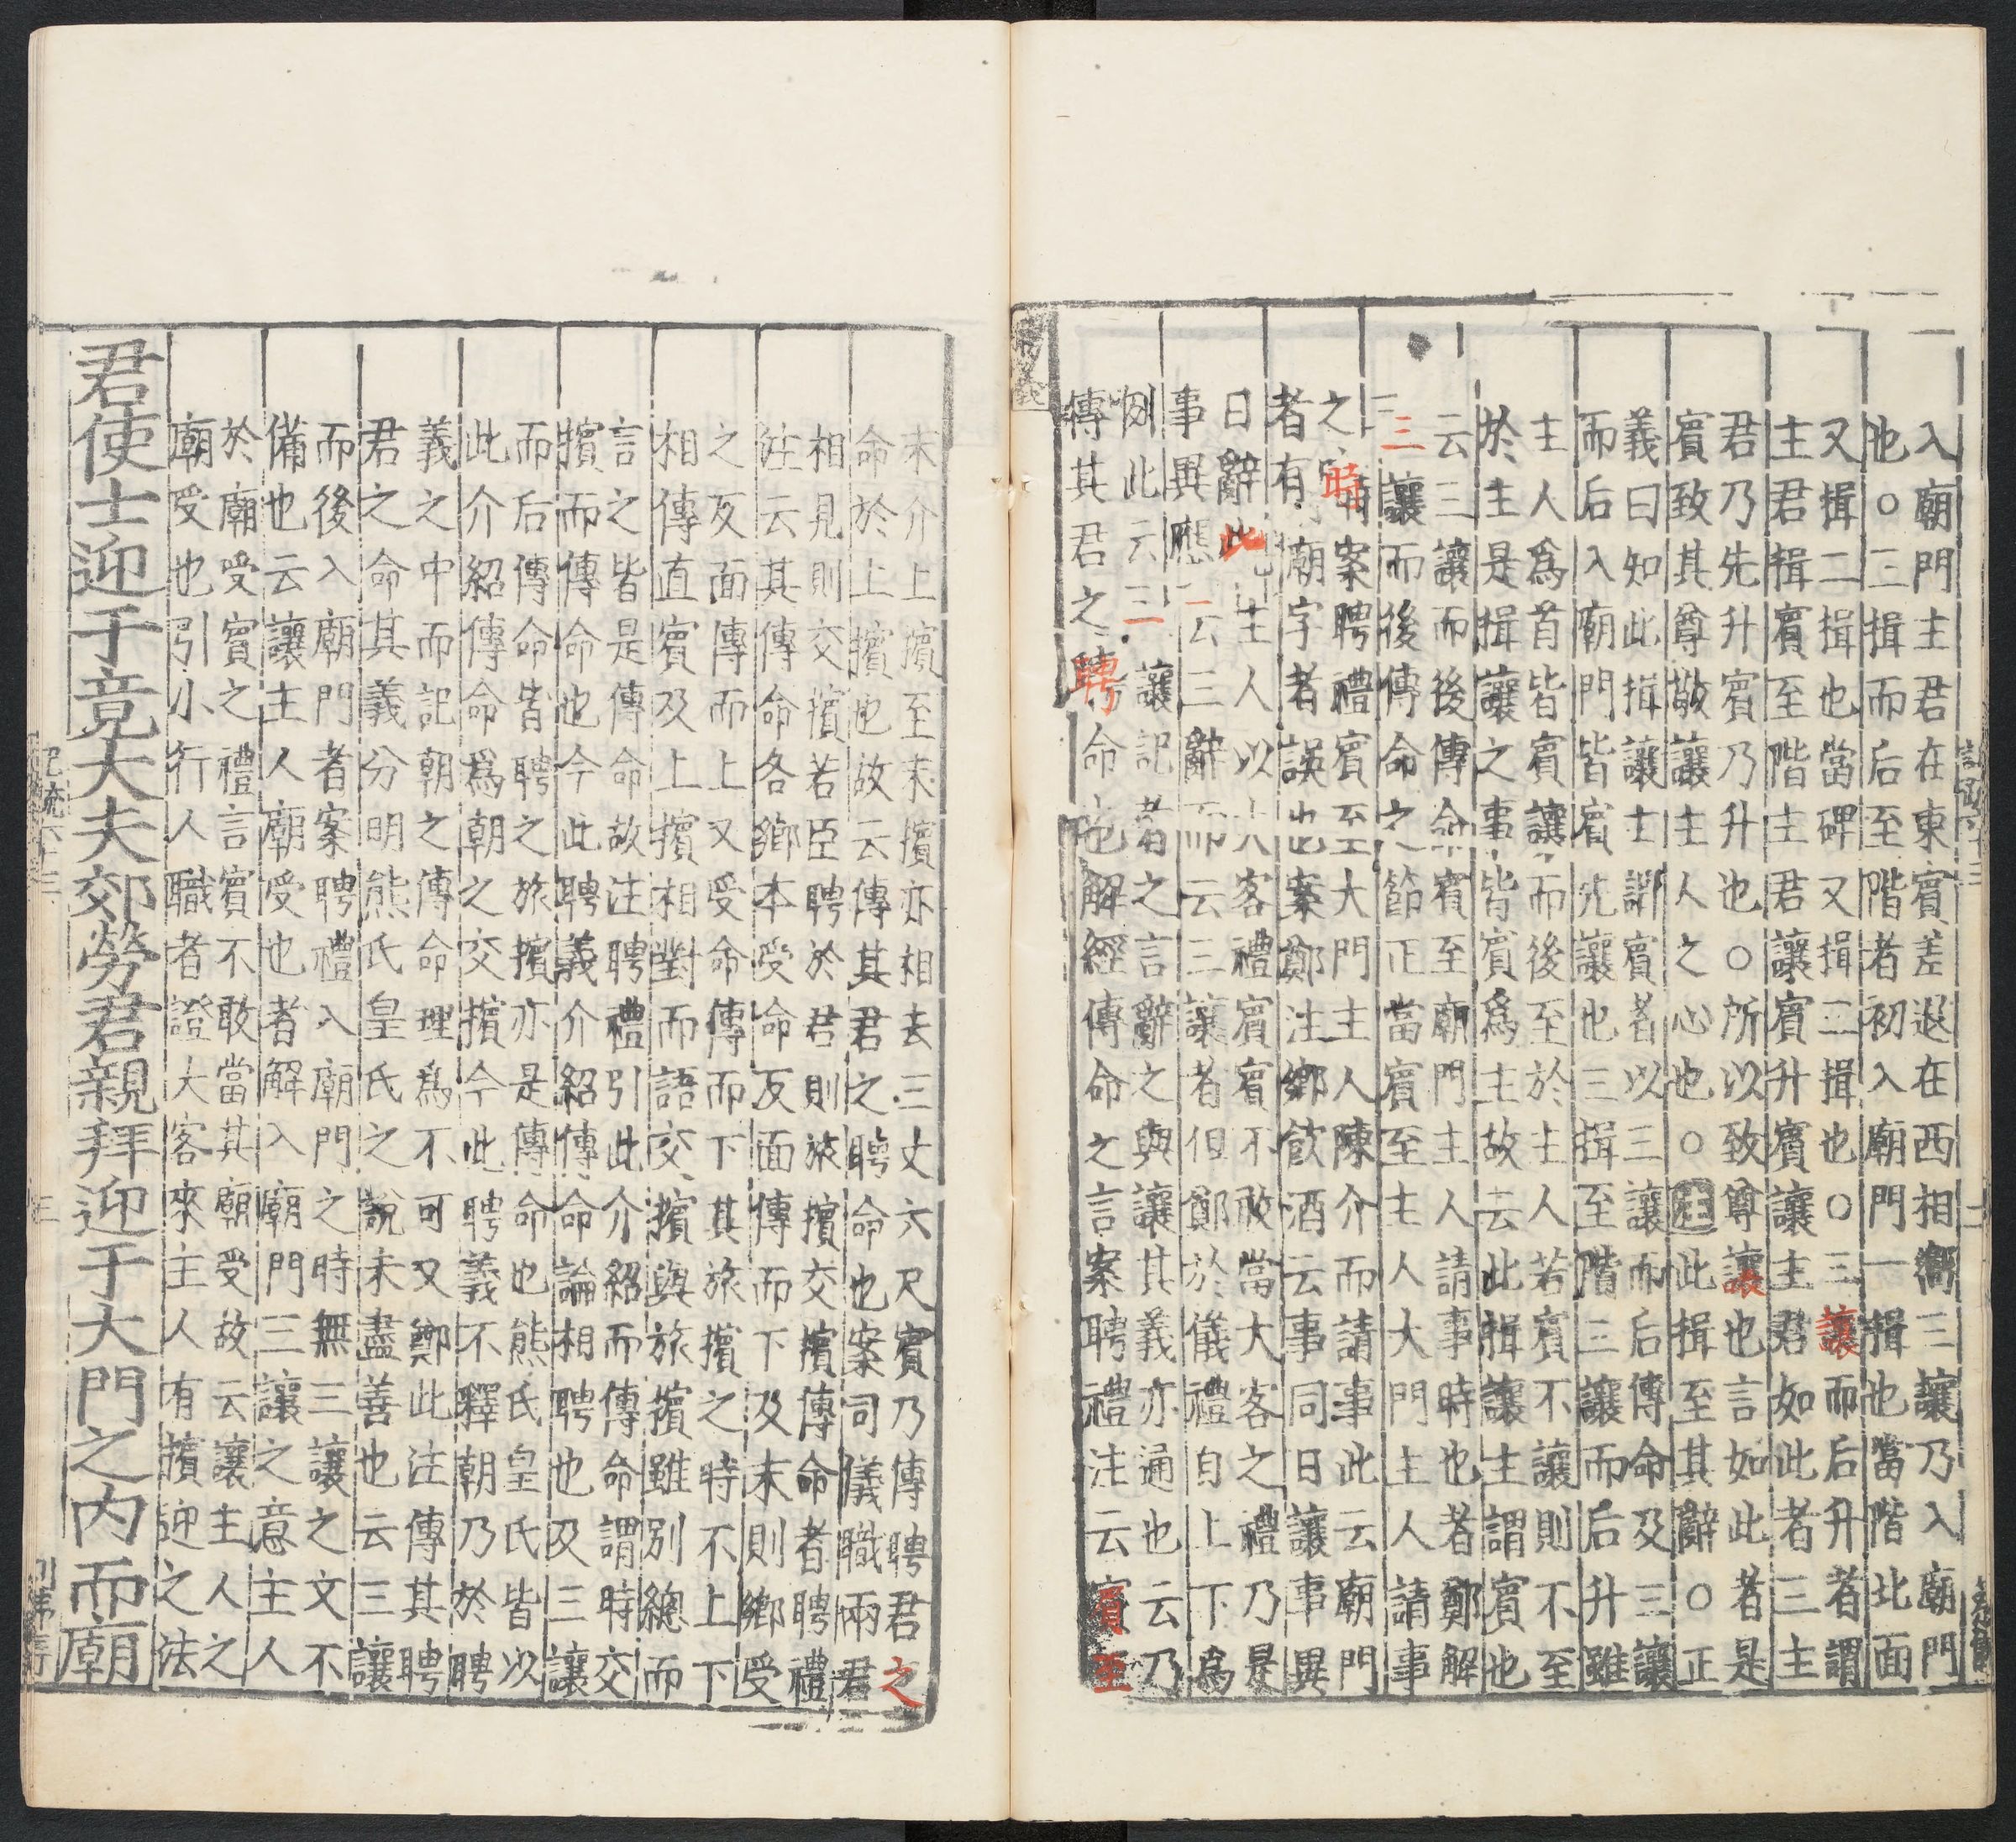 入廟門主君在東賓差退在西相嚮三讓乃入廟門
也○三揖而后至階者初入廟門一揖也當階北面
又揖二揖也當碑又揖三揖也○三讓而后升者謂
主君揖賓至階主君讓賓升賓讓主君如此者三主
君乃先升賓乃升也○所以致尊讓也言如此者是
賓致其尊敬讓主人之心也○疏此揖至其辭○正
義曰知此揖讓主謝賓者以三讓而后傳命及三讓
而后入廟門皆賓先讓也三揖至階三讓而后升雖
主人為首皆賓讓而後至於主人若賓不讓則不至
於主是揖讓之事皆賓為主故云此揖讓主謂賓也
云三讓而後傳命賓至廟門主人請事時也者鄭解
三讓而後傳命之節正當賓至主人大門主人請事
之時案聘禮賓至大門主人陳介而請事此云廟門
者有廟字者誤也案鄭注鄉飲酒云事同曰讓事異
曰辭此主人以大客禮賓賓不敢當大客之禮乃是
事異應云三辭而云三讓者但鄭於儀禮自上下為
例此云三讓記者之言辭之與讓其義亦通也云乃
傳其君之聘命也解經傳命之言案聘禮注云賓至
末介上擯至末擯亦相去三丈六尺賓乃傳聘君之
命於上擯也故云傳其君之聘命也案司儀職兩君
相見則交擯若臣聘於君則旅擯交擯傳命者聘禮
注云其傳命各鄉本受命反面傳而下及末則鄉受
之反面傳而上又受命傳而下其旅擯之時不上下
相傳直賓及上擯相對而語交擯與旅擯雖別總而
言之皆是傳命故注聘禮引此介紹而傳命謂時交
擯而傳命也今此聘義介紹傳命論相聘也及三讓
而后傳命皆聘之旅擯亦是傳命也熊氏皇氏皆以
此介紹傳命為朝之交擯今此聘義不釋朝乃於聘
義之中而記朝之傳命理為不可又鄭此注傳其聘
君之命其義分明熊氏皇氏之說未盡善也云三讓
而後入廟門者案聘禮入廟門之時無三讓之文不
備也云讓主人廟受也者解入廟門三讓之意主人
於廟受賓之禮言賓不敢當其廟受故云讓主人之
廟受也引小行人職者證大客來主人有擯迎之法
君使士迎于竟大夫郊勞君親拜迎于大門之内而廟